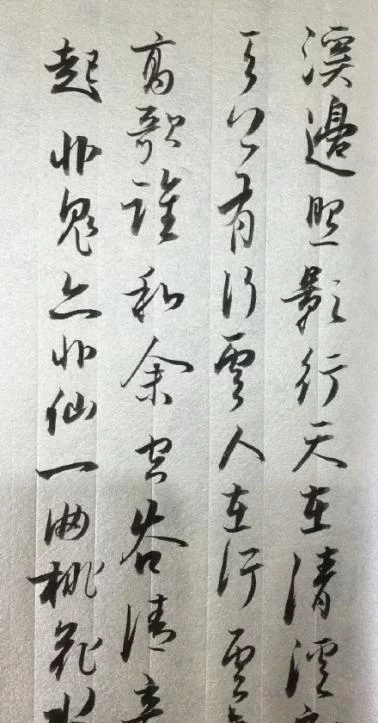 溪邊照影行天在清溪
天上有行雲人在行雲
高歌誰和余空谷清音
起非鬼亦非仙一曲桃花水